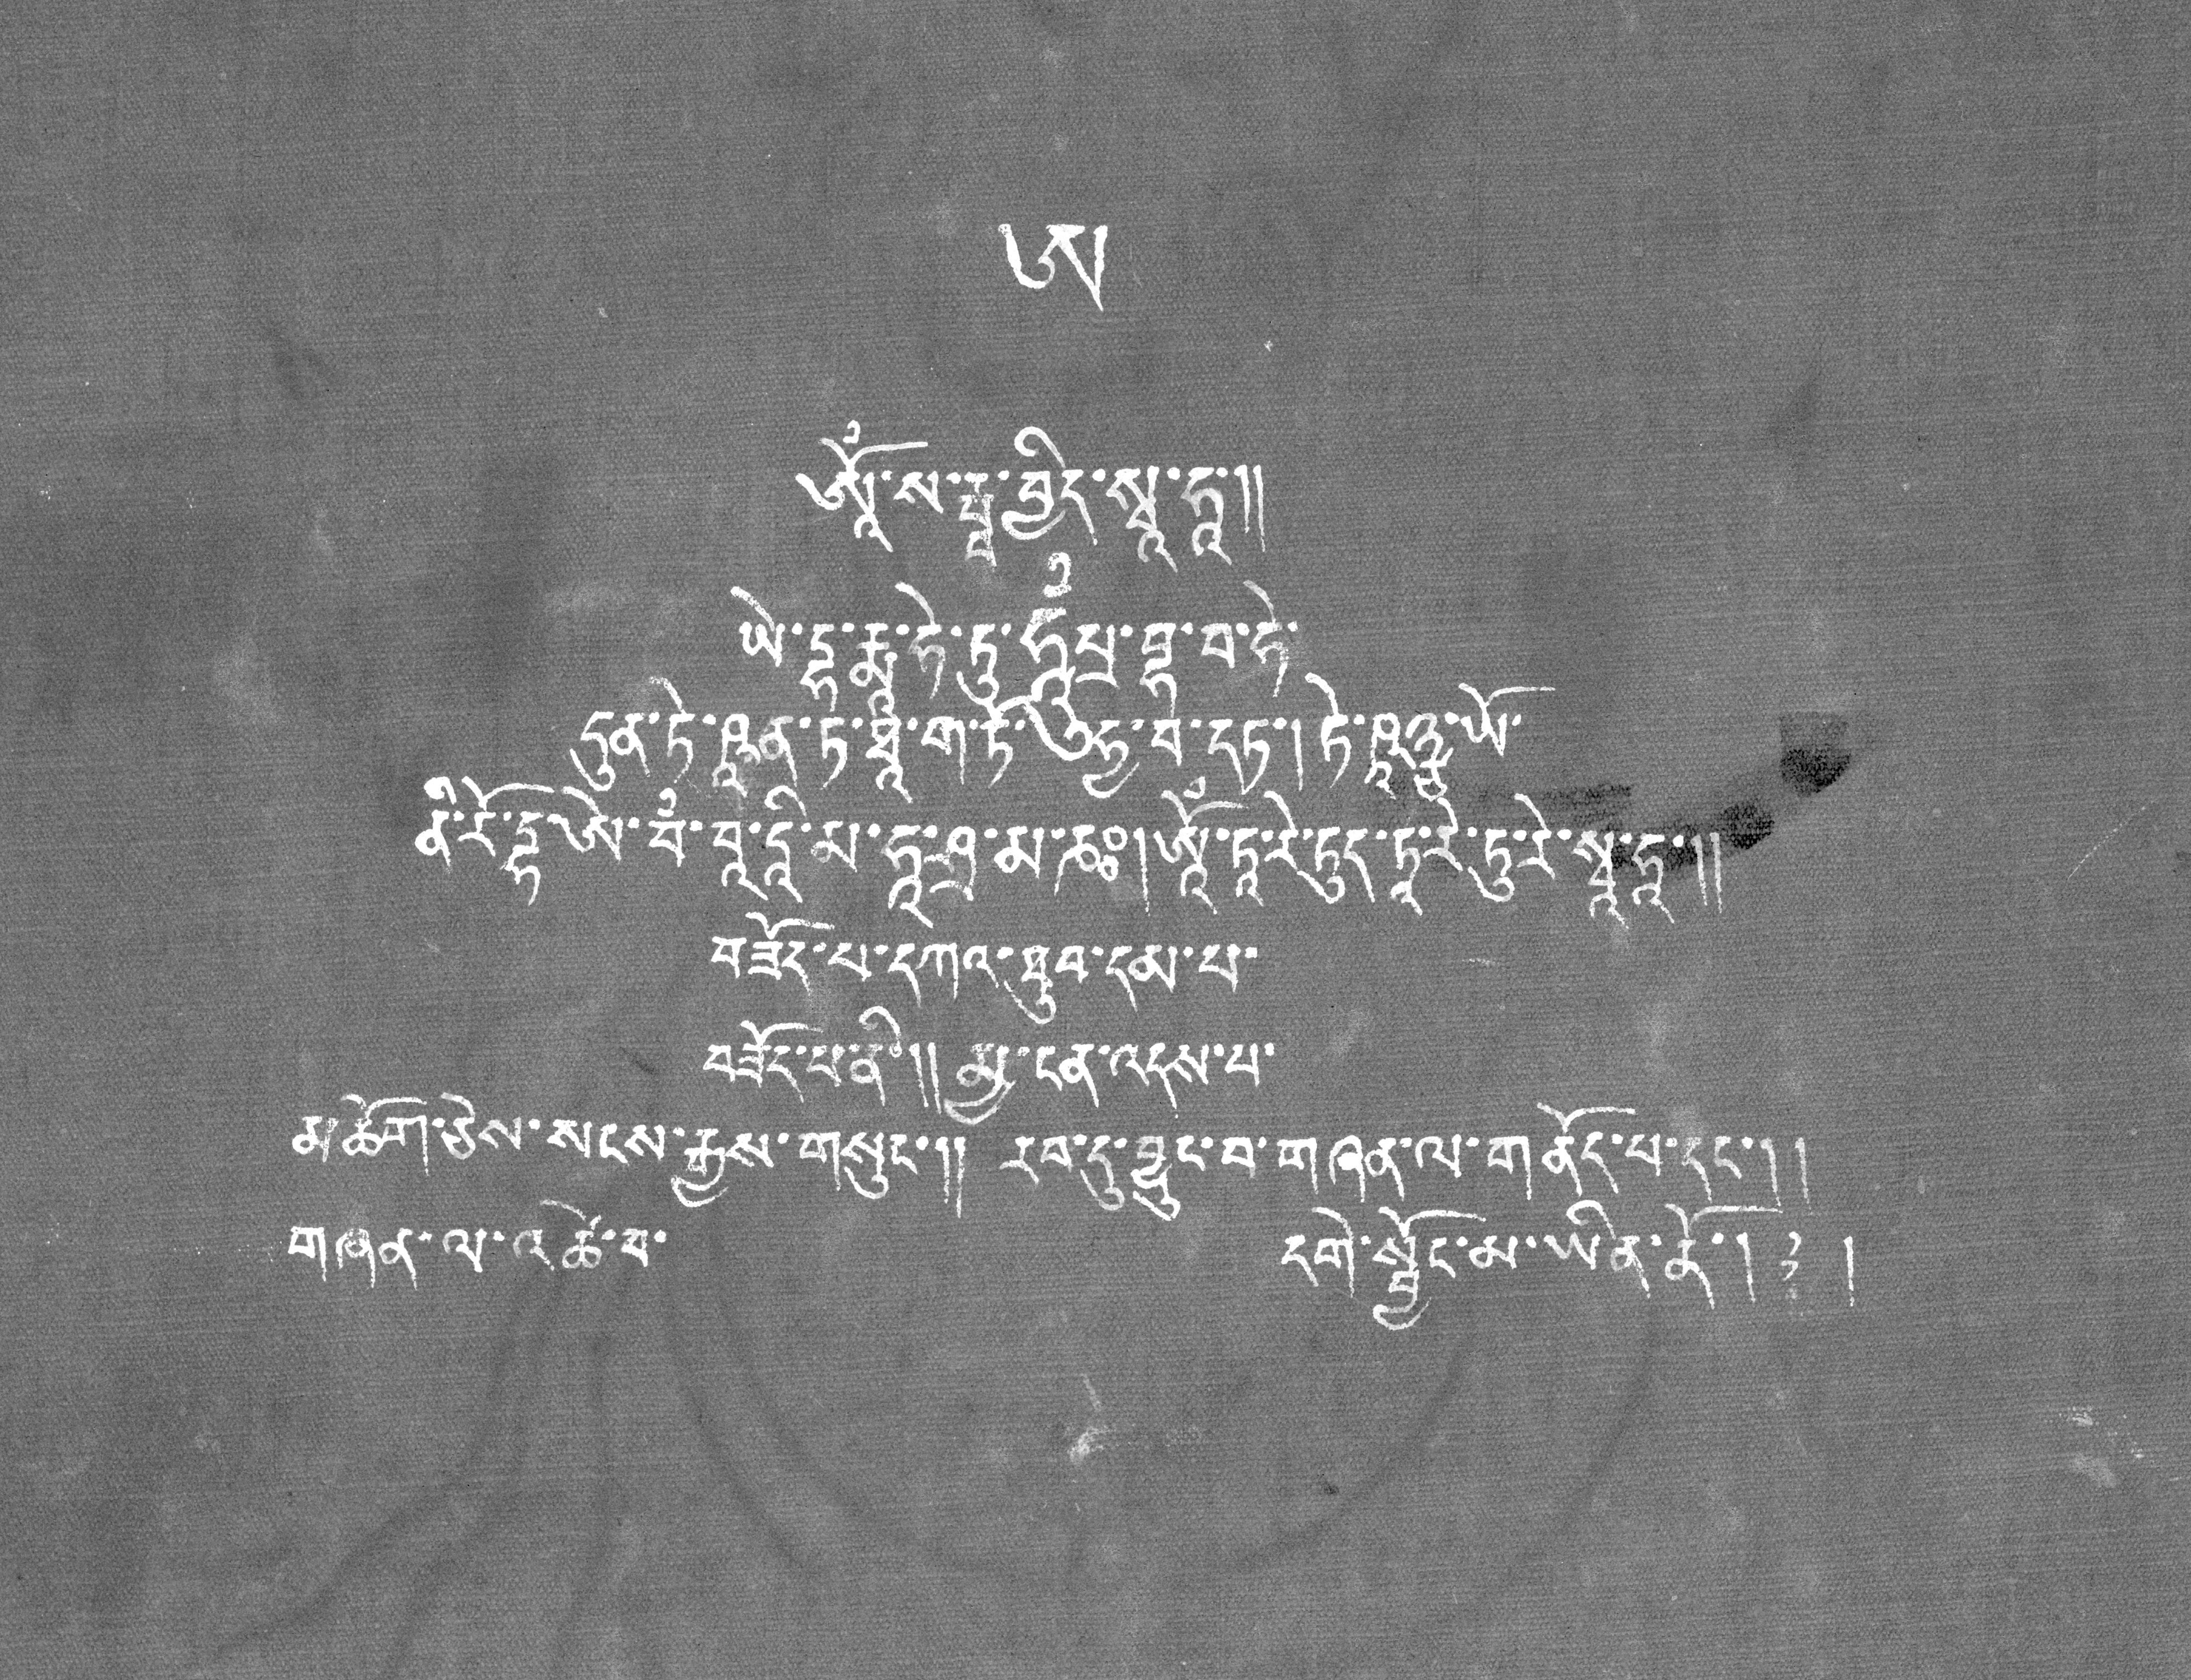 ཨ
ཨཱོཾ་ས་རྦ་བྱིད་སྭཱ་ཧཱ།།
ཡེ་དྷ་རྨཱ་ཧེ་ཏུ་ཧཱུྃ་པྲ་བྷ་བ་ཧེ་
ཏུན་ཏེ་ཥཱན་ཏ་ཐཱ་ག་ཏོ་ཨུ་ཧྱ་བ་དཏ། ཏེ་ཥཱཉྩ་ཡོ་
ནི་རོ་དྷོ་ཨེ་བཾ་བཱ་དཱི་མ་ཧཱ་ཤྲ་མ་ཎཿ། ཨཱོཾ་ཏཱ་རེ་ཏུད་ཏཱ་རེ་ཏུ་རེ་སྭཱ་ཧཱ།།
བཟོད་པ་དཀའ་ཐུབ་དམ་པ་
བཟོད་པ་ནི།། མྱ་ངན་འདས་པ་
མཆོག་ཅེས་སངས་རྒྱས་གསུང་།། རབ་དུ་བྱུང་བ་གཞན་ལ་གནོད་པ་དང་།།
གཞན་ལ་འཚེ་བ་ དགེ་སྦྱོང་མ་ཡིན་ནོ། ། །